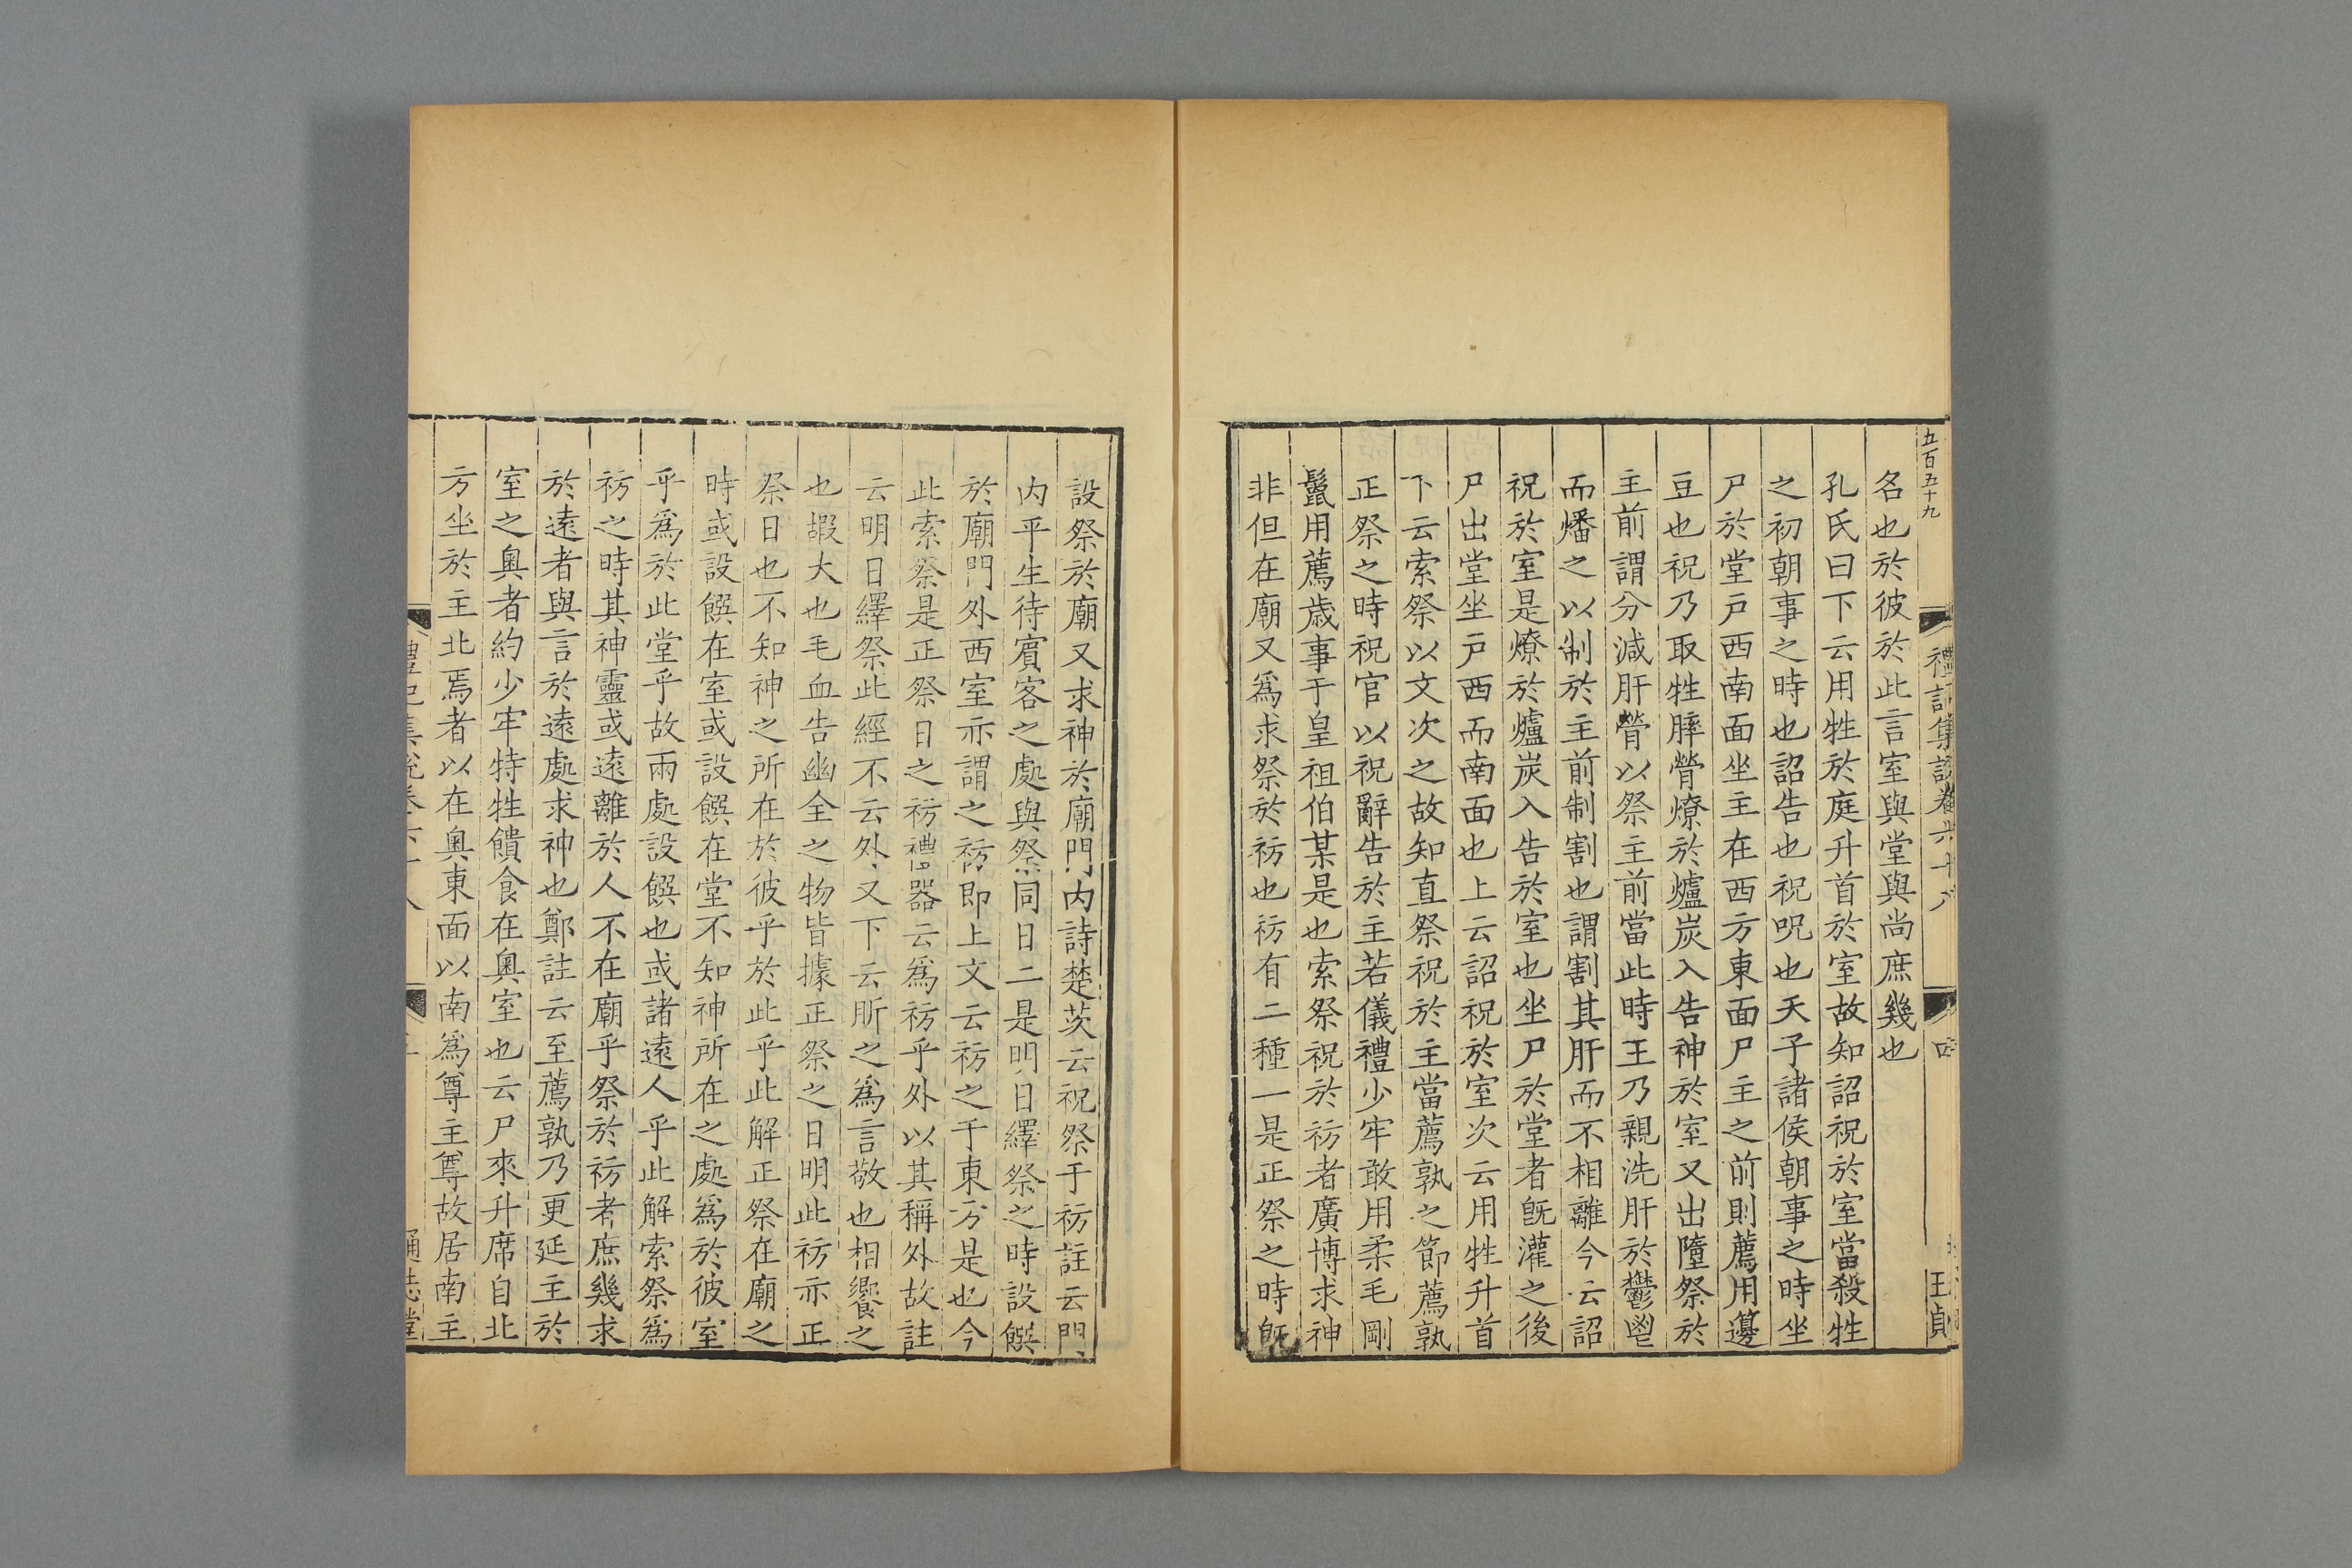 五百五十九
禮記集說卷六十八
四
王貞
名也於彼於此言室與堂與尚庶幾也
孔氏曰下云用牲於庭升首於室故知詔祝於室當殺牲
之初朝事之時也詔告也祝呪也天子諸侯朝事之時坐
尸於堂戶西南面坐主在西方東面尸主之前則薦用籩
豆也祝乃取牲膟膋燎於爐炭入告神於室又出墮祭於
主前謂分減肝膋以祭主前當此時王乃親洗肝於鬱鬯
而燔之以制於主前制割也謂割其肝而不相離今云詔
祝於室是燎於爐炭入告於室也坐尸於堂者旣灌之後
尸出堂坐戶西而南面也上云詔祝於室次云用牲升首
下云索祭以文次之故知直祭祝於主當薦孰之節薦孰
正祭之時祝官以祝辭告於主若儀禮少牢敢用柔毛剛
鬣用薦歲事于皇祖伯某是也索祭祝於祊者廣博求神
非但在廟又爲求祭於祊也祊有二種一是正祭之時旣
設祭於廟又求神於廟門內詩楚茨云祝祭于祊註云門
內平生待賔客之處與祭同日二是明日繹祭之時設饌
於廟門外西室亦謂之祊即上文云祊之于東方是也今
此索祭是正祭日之祊禮器云爲祊乎外以其稱外故註
云明日繹祭此經不云外又下云肵之爲言敬也相饗之
也嘏大也毛血告幽全之物皆據正祭之日明此祊亦正
祭日也不知神之所在於彼乎於此乎此解正祭在廟之
時或設饌在室或設饌在堂不知神所在之處爲於彼室
乎爲於此堂乎故兩處設饌也或諸遠人乎此解索祭爲
祊之時其神靈或遠離於人不在廟乎祭於祊者庶幾求
於遠者與言於遠處求神也鄭註云至薦孰乃更延主於
室之奧者約少牢特牲饋食在奧室也云尸來升席自北
方坐於主北焉者以在奧東面以南爲尊主尊故居南主
禮記集說卷六十八
通志堂